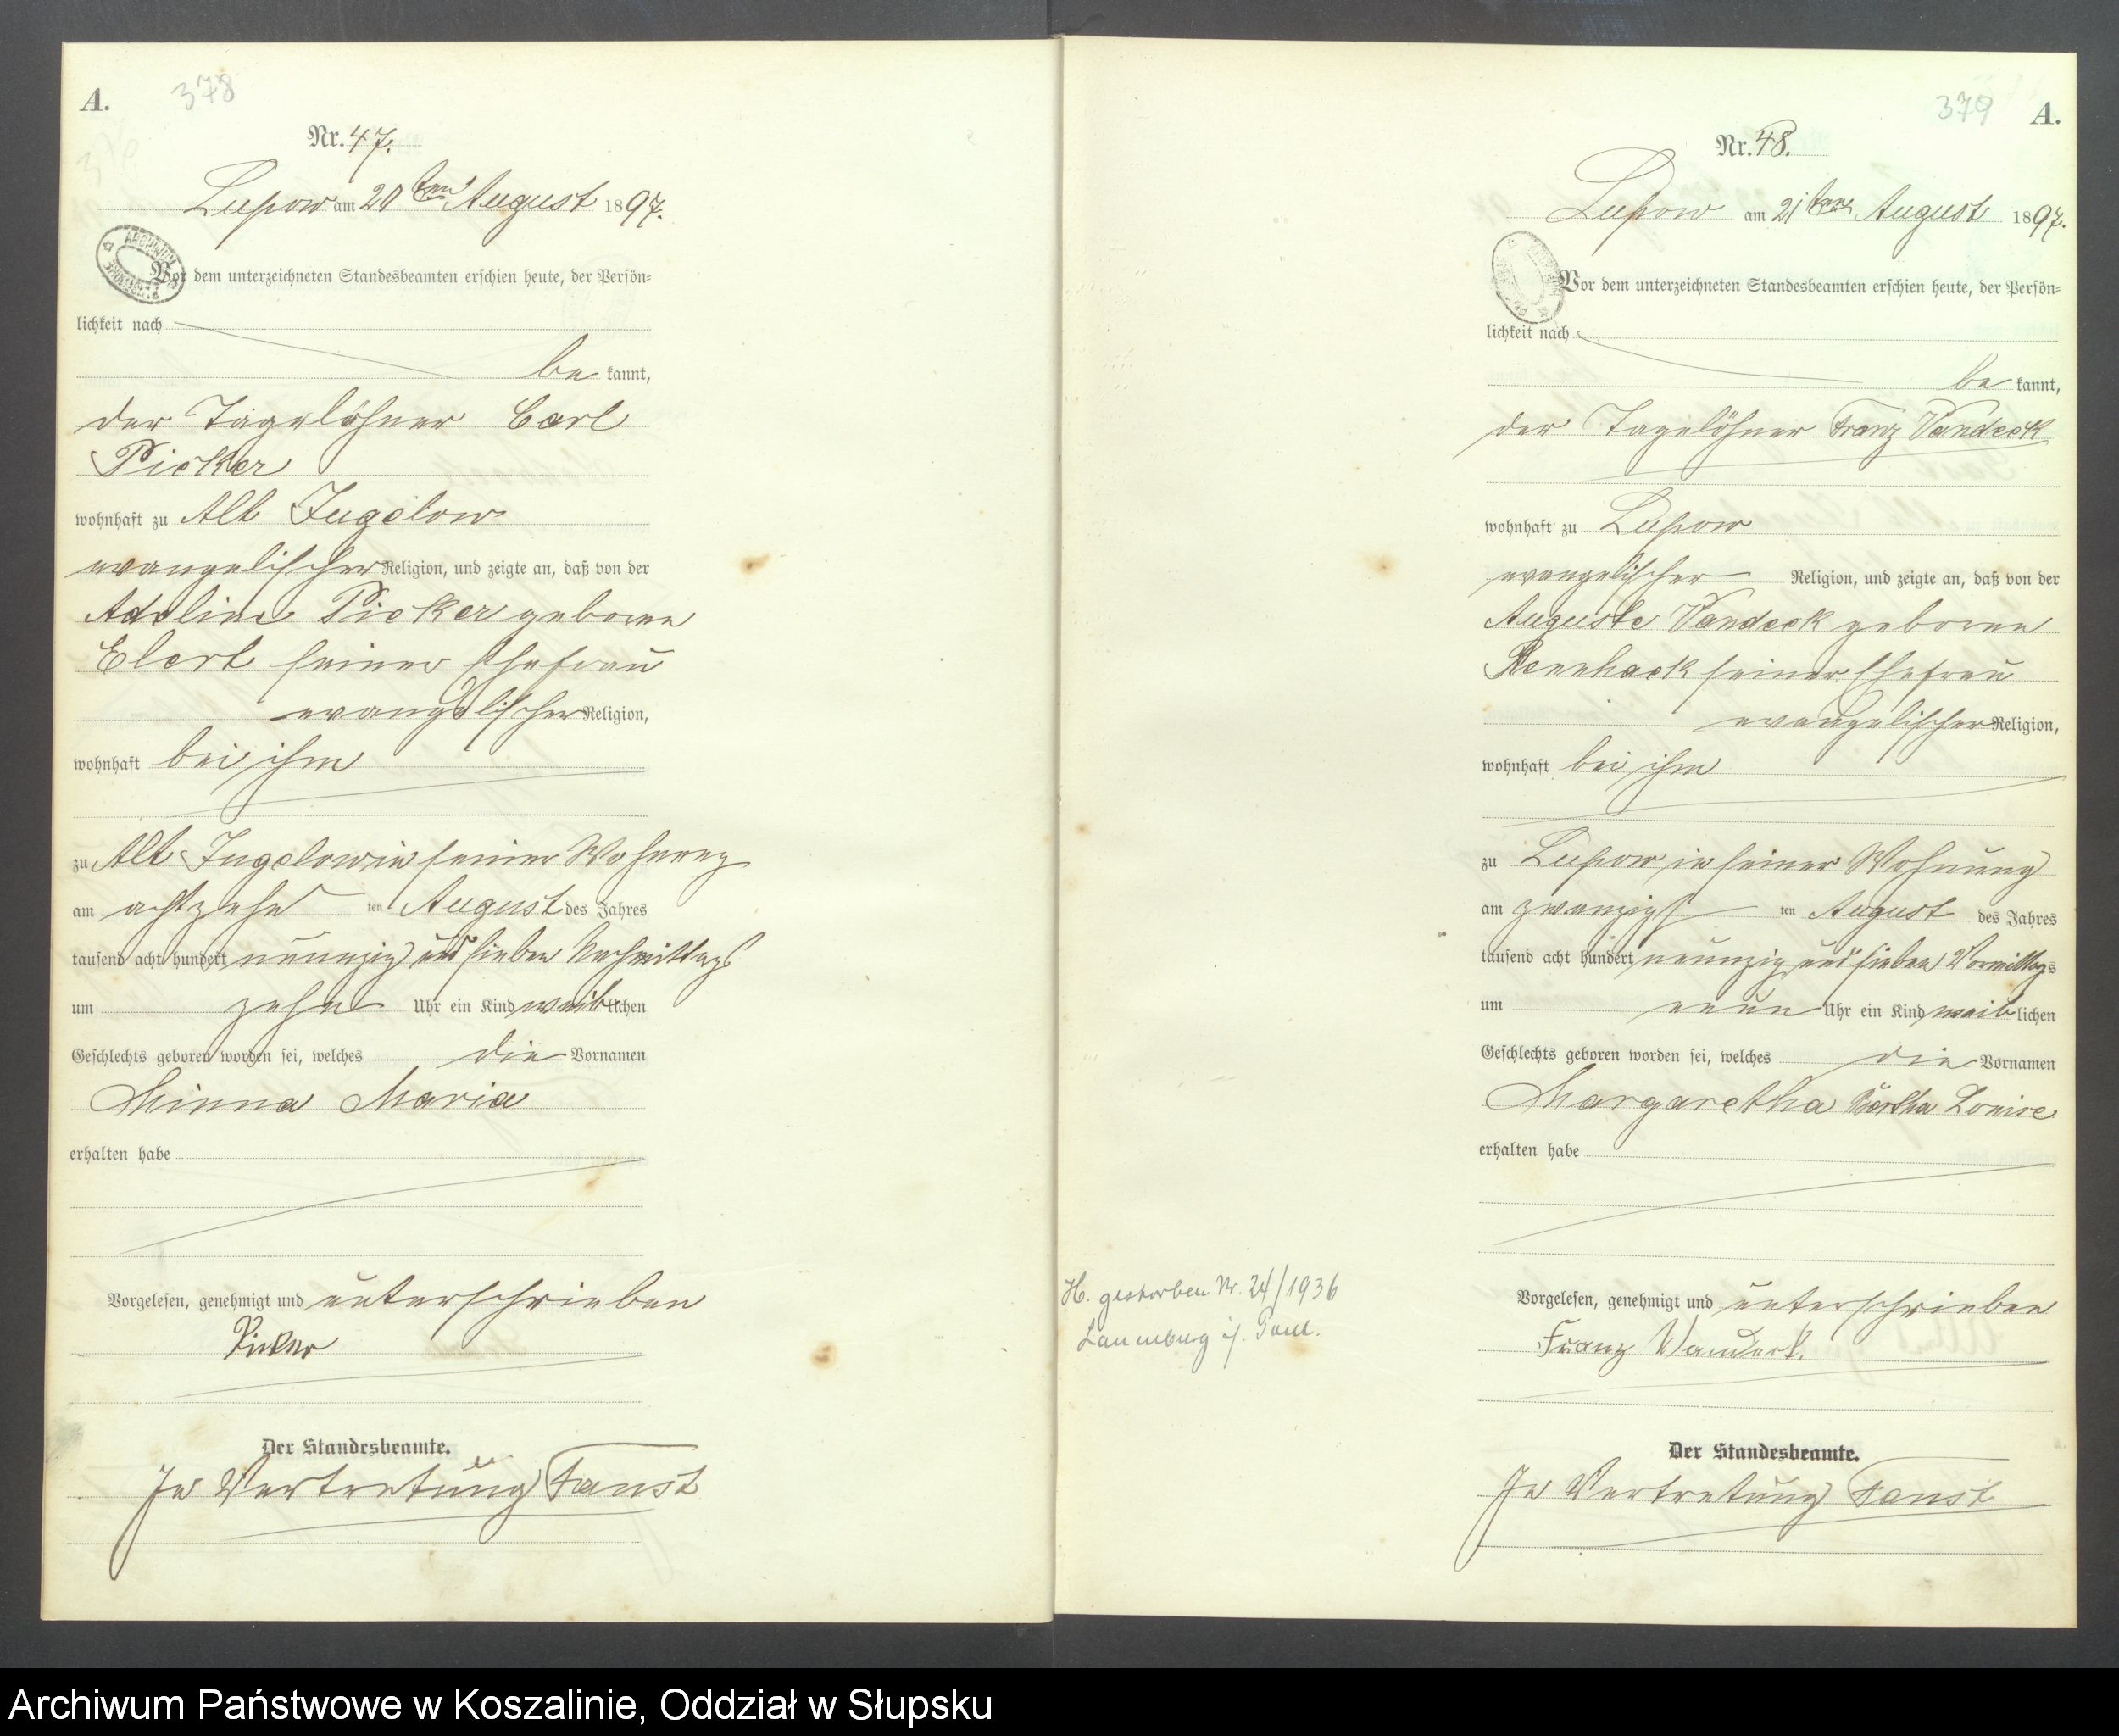 A.
378
Nr. 47.
Lupow am 20ten August 1897.
Vor dem unterzeichneten Standesbeamten erschien heute, der Persön=
lichkeit nach
be kannt,
der Tagelöhner Carl
Picker
wohnhaft zu Alt Jugelow
evangelischer Religion, und zeigte an, daß von der
Adeline Picker geborene
Elert seiner Ehefrau
evangelischer Religion,
wohnhaft bei ihm
zu Alt Jugelow in seiner Wohnung
am achtzehn ten August des Jahres
tausend acht hundert neunzig und sieben Nachmittags
um zehn Uhr ein Kind weiblichen
Geschlechts geboren worden sei, welches die Vornamen
Minna Maria
erhalten habe
Vorgelesen, genehmigt und unterschrieben
Picker
Der Standesbeamte.
In Vertretung Faust
379
A.
Nr. 48.
Lupow am 21ten August 1897.
Vor dem unterzeichneten Standesbeamten erschien heute, der Persön=
lichkeit nach
be kannt,
der Tagelöhner Franz Vandeck
wohnhaft zu Lupow
evangelischer Religion, und zeigte an, daß von der
Auguste Vandeck geborene
seiner Ehefrau
evangelischer Religion,
wohnhaft bei ihm
zu Lupow in seiner Wohnung
am zwanzigsten August des Jahres
tausend acht hundert neunzig und sieben Vormittags
um neun Uhr ein Kind weiblichen
Geschlechts geboren worden sei, welches die Vornamen
Margaretha Bertha Louise
erhalten habe
Vorgelesen, genehmigt und unterschrieben
Franz Wandeck.
Der Standesbeamte.
In Vertretung Faust
H. gestorben Nr. 24/1936
Lauenburg i/. Pom.
Archiwum Państwowe w Koszalinie, Oddział w Słupsku